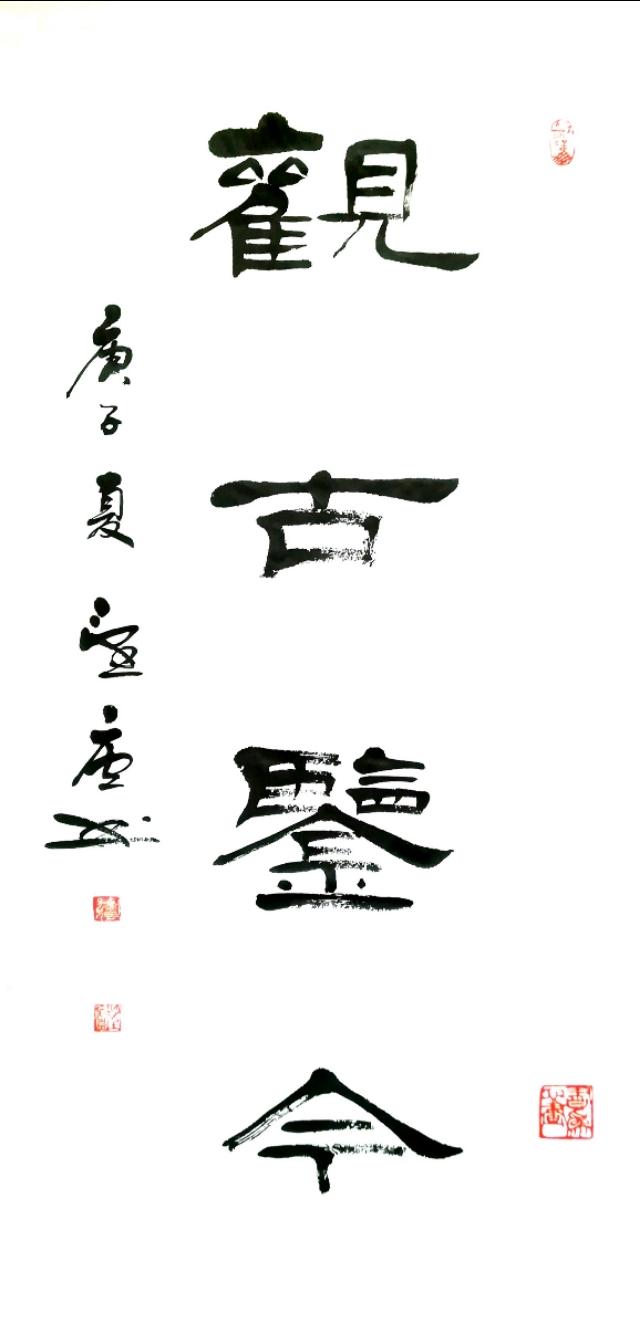 觀古鑒今
庚子夏